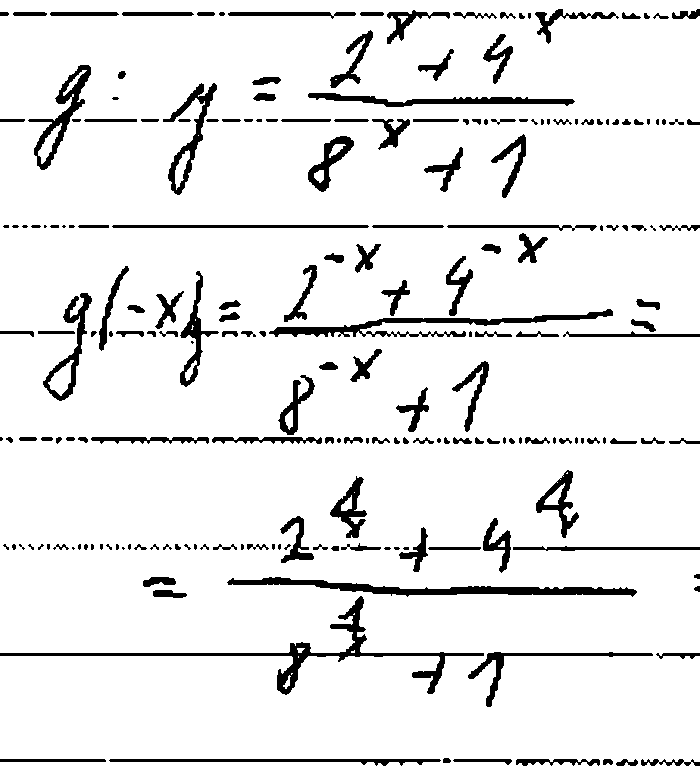 g: y = \frac{2^x + 4^x}{8^x + 1}
g(-x) = \frac{2^{-x} + 4^{-x}}{8^{-x} + 1} =
= \frac{2^{\frac{1}{x}} + 4^{\frac{1}{x}}}{8^{\frac{1}{x}} + 1} =